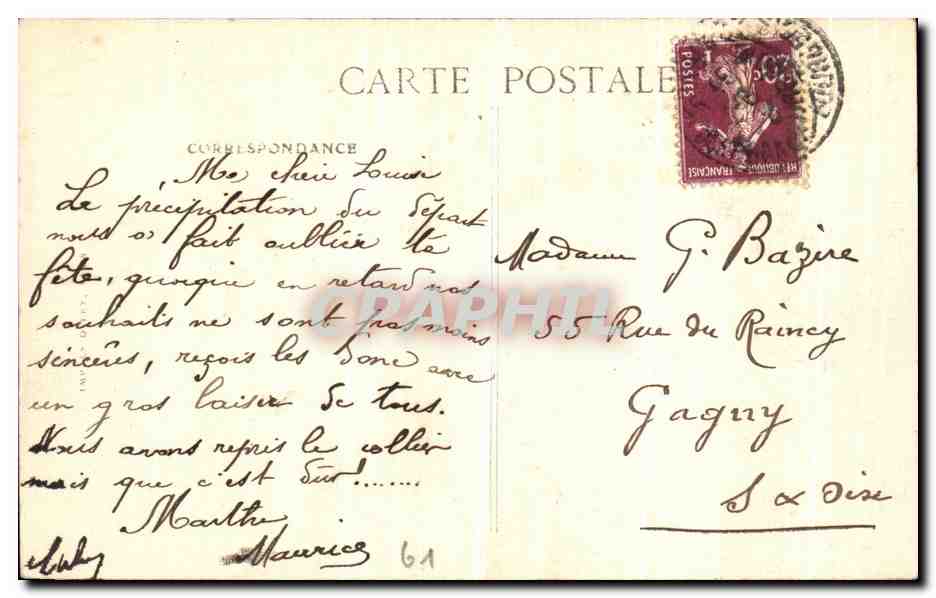 CARTE POSTALE
CORRESPONDANCE
Ma chère Louise
La précipitation du départ
nous a fait oublier ta
fête, quoique en retard nos
souhaits ne sont pas moins
sincères, reçois les donc avec
un gros baiser de tous.
Nous avons repris le collier
mais que c'est dur!.......
Marthe
Maurice
61
Madame G. Bazire
55 Rue du Raincy
Gagny
S & Oise
20c
POSTES
REPUBLIQUE FRANÇAISE
CPAPHIL